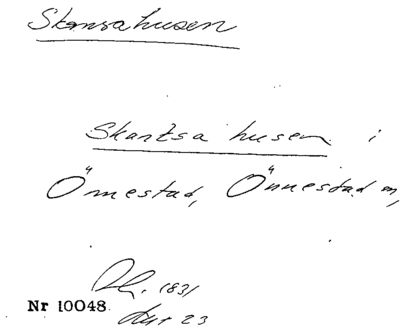 Skansahusen
Skantsa husen i
Önnestad, Önnestad sn,
1831
Nr 10048
23